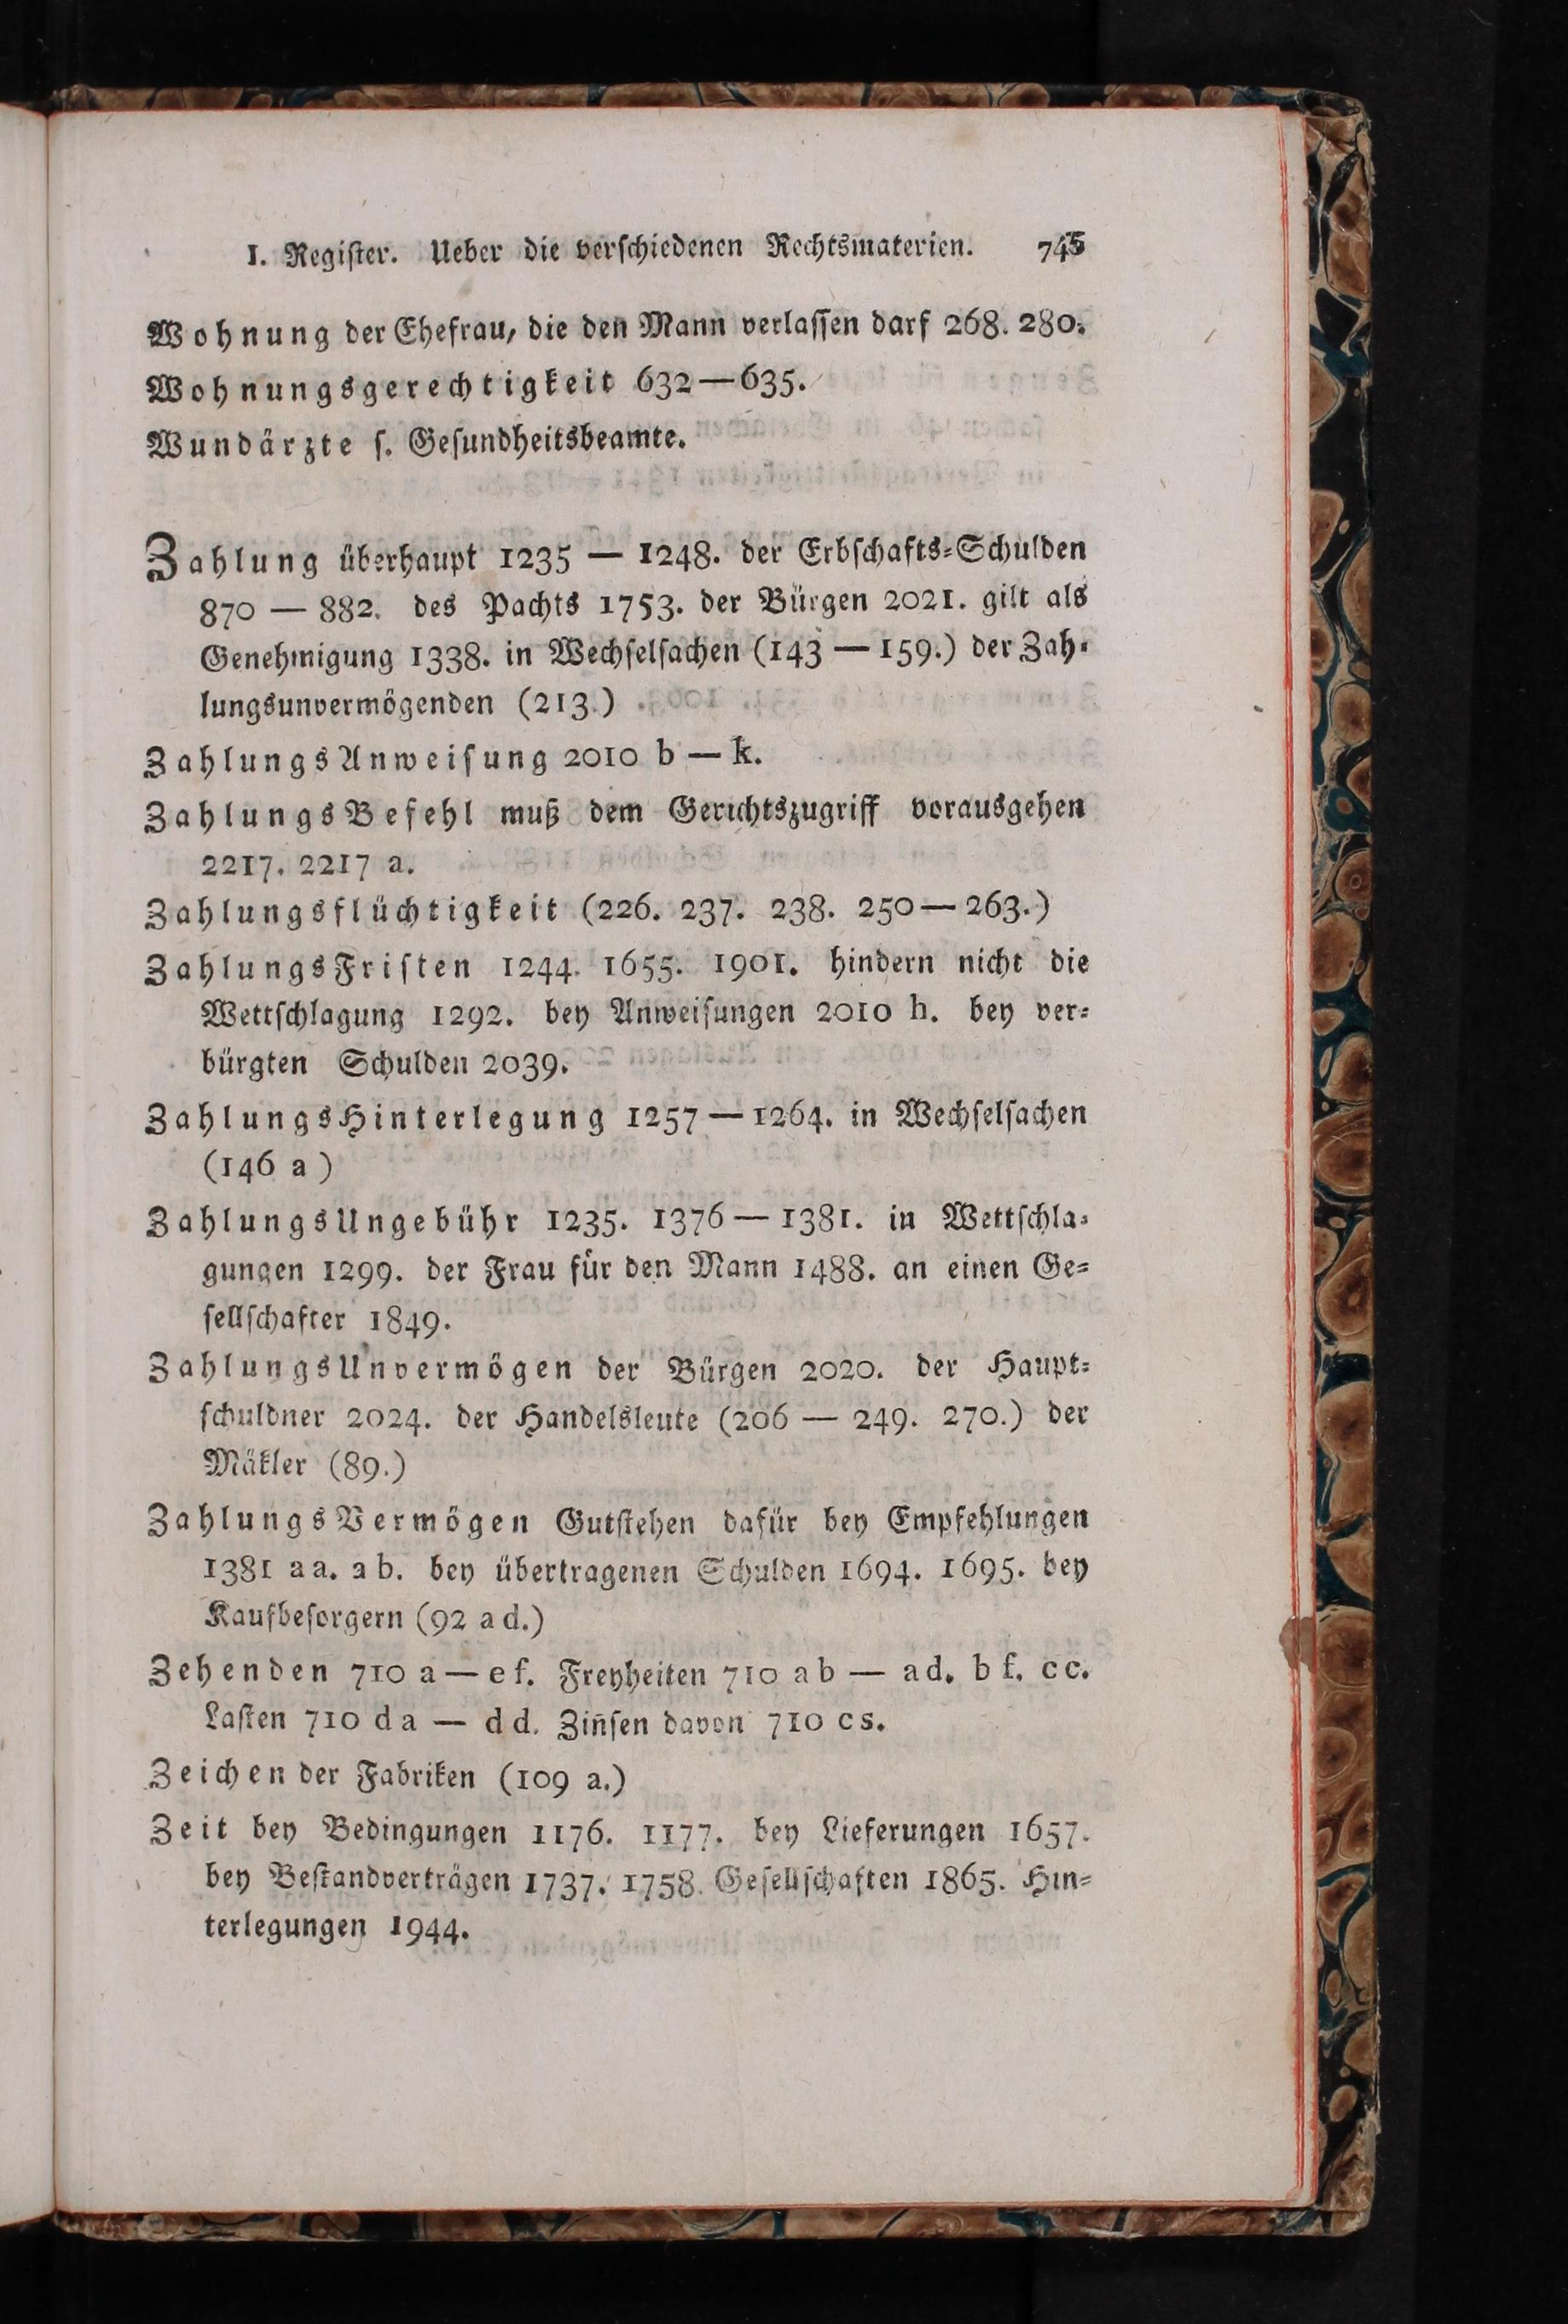 I. Register. Ueber die verschiedenen Rechtsmaterien. 745
Wohnung der Ehefrau, die den Mann verlassen darf 268. 280.
Wohnungsgerechtigkeit 632—635.
Wundärzte s. Gesundheitsbeamte.
Zahlung überhaupt 1235 — 1248. der Erbschafts-Schulden
870 — 882. des Pachts 1753. der Bürgen 2021. gilt als
Genehmigung 1338. in Wechselsachen (143 — 159.) der Zah-
lungsunvermögenden (213.)
ZahlungsAnweisung 2010 b — k.
ZahlungsBefehl muß dem Gerichtszugriff vorausgehen
2217. 2217 a.
Zahlungsflüchtigkeit (226. 237. 238. 250—263.)
ZahlungsFristen 1244. 1655. 1901. hindern nicht die
Wettschlagung 1292. bey Anweisungen 2010 h. bey ver-
bürgten Schulden 2039.
ZahlungsHinterlegung 1257—1264. in Wechselsachen
(146 a)
ZahlungsUngebühr 1235. 1376—1381. in Wettschla-
gungen 1299. der Frau für den Mann 1488. an einen Ge-
sellschafter 1849.
ZahlungsUnvermögen der Bürgen 2020. der Haupt-
schuldner 2024. der Handelsleute (206 — 249. 270.) der
Mäkler (89.)
ZahlungsVermögen Gutstehen dafür bey Empfehlungen
1381 aa. ab. bey übertragenen Schulden 1694. 1695. bey
Kaufbesorgern (92 ad.)
Zehenden 710 a—ef. Freyheiten 710 ab — ad. bf. cc.
Lasten 710 da — dd. Zinsen davon 710 cs.
Zeichen der Fabriken (109 a.)
Zeit bey Bedingungen 1176. 1177. bey Lieferungen 1657.
bey Bestandverträgen 1737. 1758. Gesellschaften 1865. Hin-
terlegungen 1944.